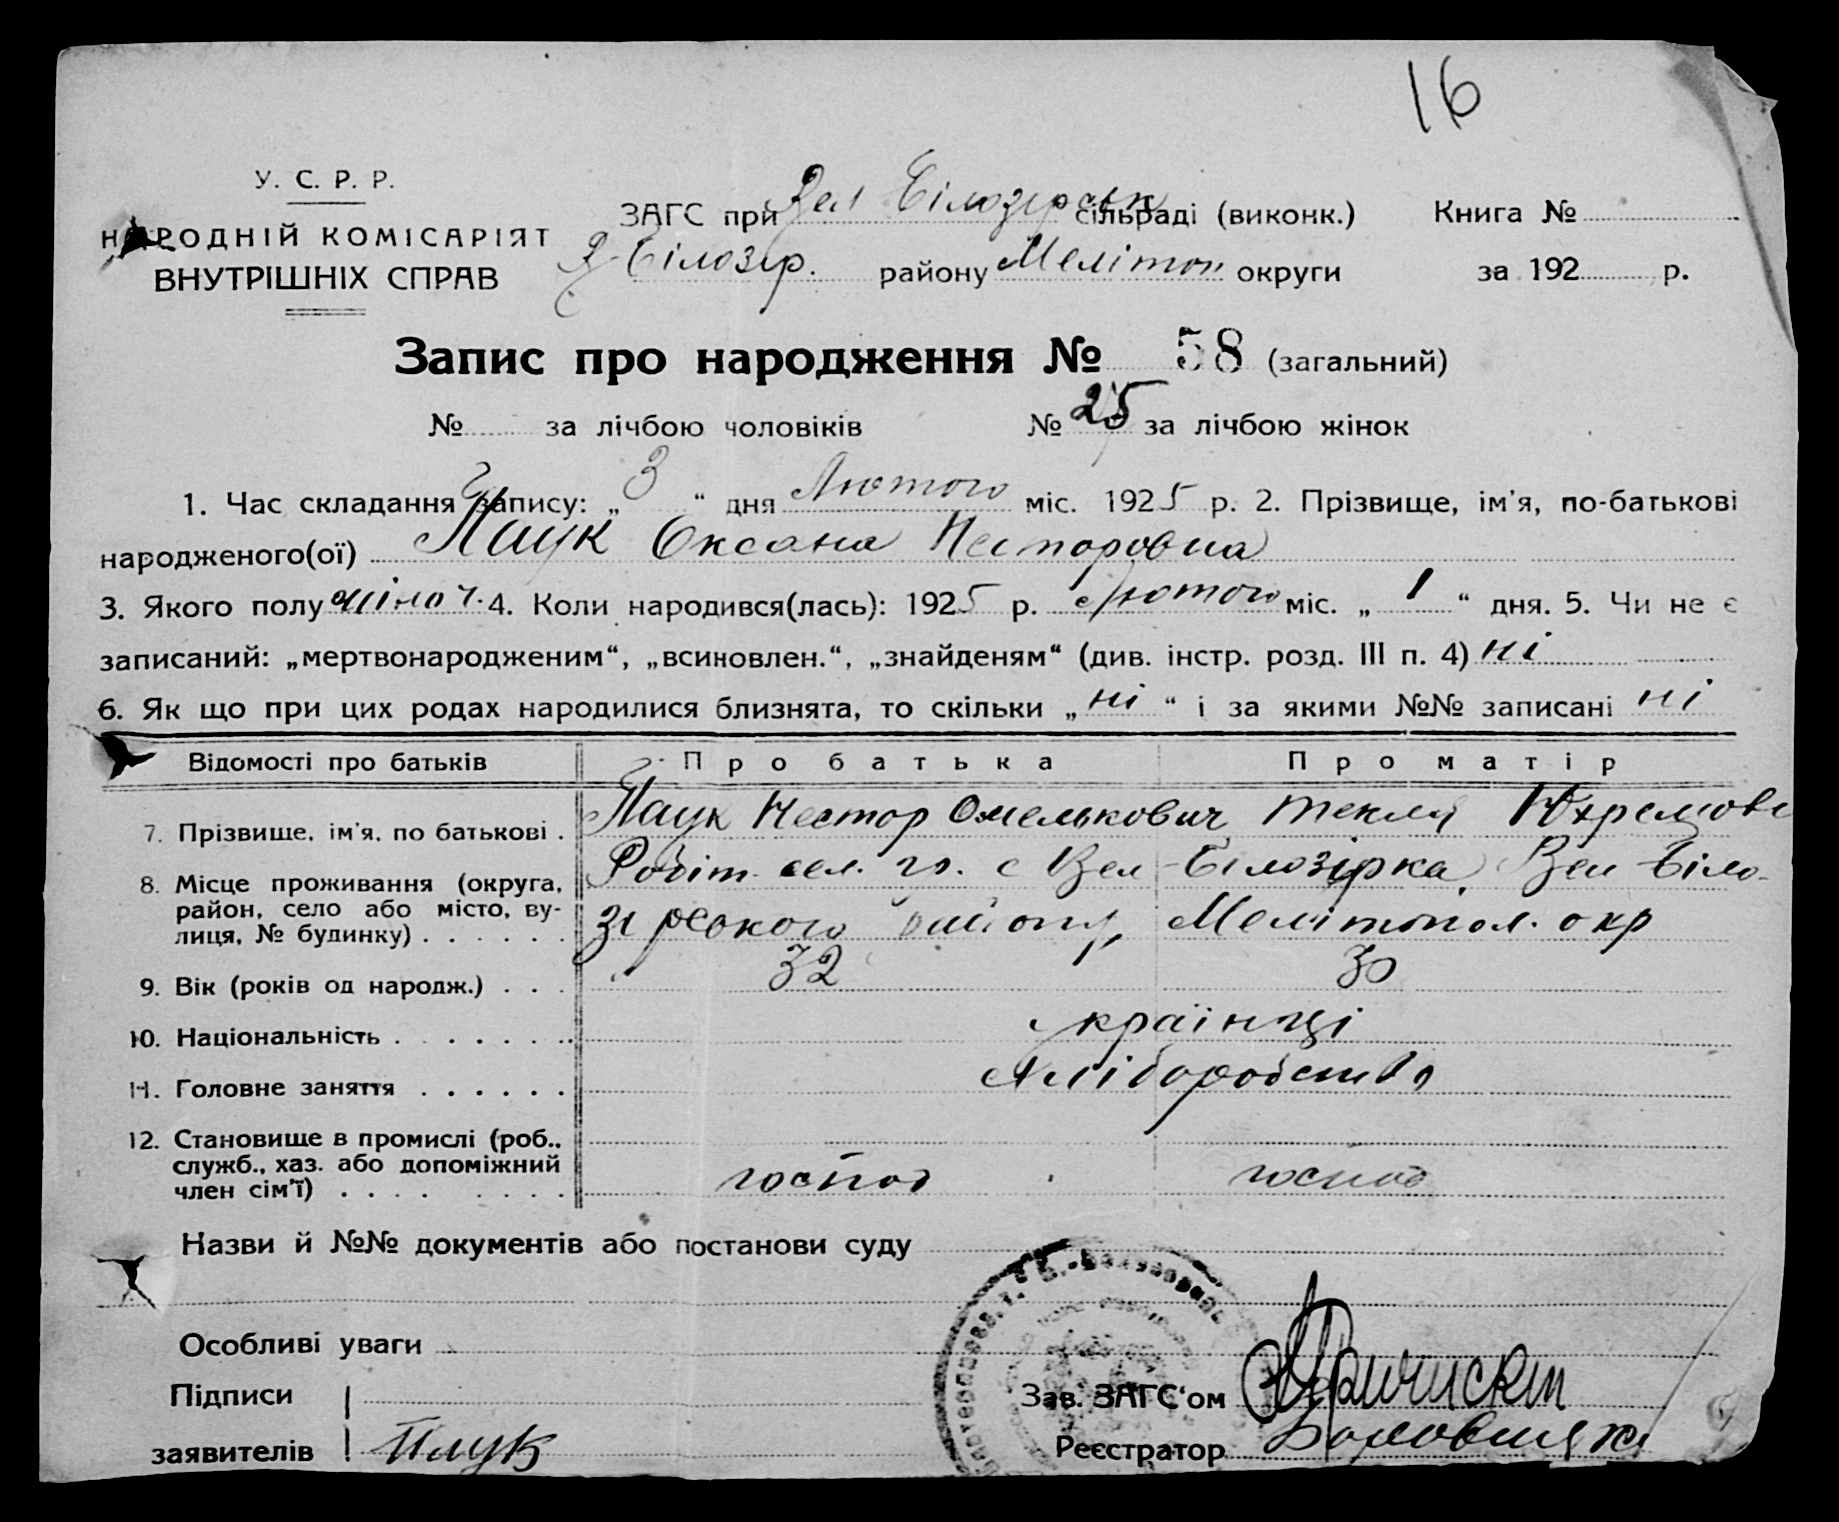 16
У. С. Р. Р.
НАРОДНІЙ КОМІСАРІЯТ
ВНУТРІШНІХ СПРАВ
ЗАГС при Вел Білозірськ сільраді (виконк.) Книга №
В-Білозір. району Мелітоп округи за 192 р.
Запис про народження № 58 (загальний)
№ за лічбою чоловіків № 25 за лічбою жінок
1. Час складання запису: „ 3 “ дня Лютого міс. 1925 р. 2. Прізвище, ім'я, по-батькові
народженого(ої) Паук Оксана Несторовна
3. Якого полу жіноч. 4. Коли народився(лась): 1925 р. Лютого міс. „ 1 “ дня. 5. Чи не є
записаний: „мертвонародженим“, „всиновлен.“, „знайденям“ (див. інстр. розд. III п. 4) ні
6. Як що при цих родах народилися близнята, то скільки „ ні “ і за якими №№ записані ні
Відомості про батьків Про батька Про матір
7. Прізвище, ім'я, по батькові . Паук Нестор Омелькович Текля
8. Місце проживання (округа, район, село або місто, вулиця, № будинку) . . . . . . Робіт. сел. гр. с Вел-Білозірка, Вел Біло-
зірського району, Мелітопол. окр
9. Вік (років од народж.) . . . 32 30
10. Національність . . . . . . . українці
11. Головне заняття . . . . . . Хліборобство
12. Становище в промислі (роб., служб., хаз. або допоміжний член сім'ї) . . . . . . . . господ господ
Назви й №№ документів або постанови суду
Особливі уваги
Підписи
заявителів Паук
Зав. ЗАГС'ом
Реєстратор